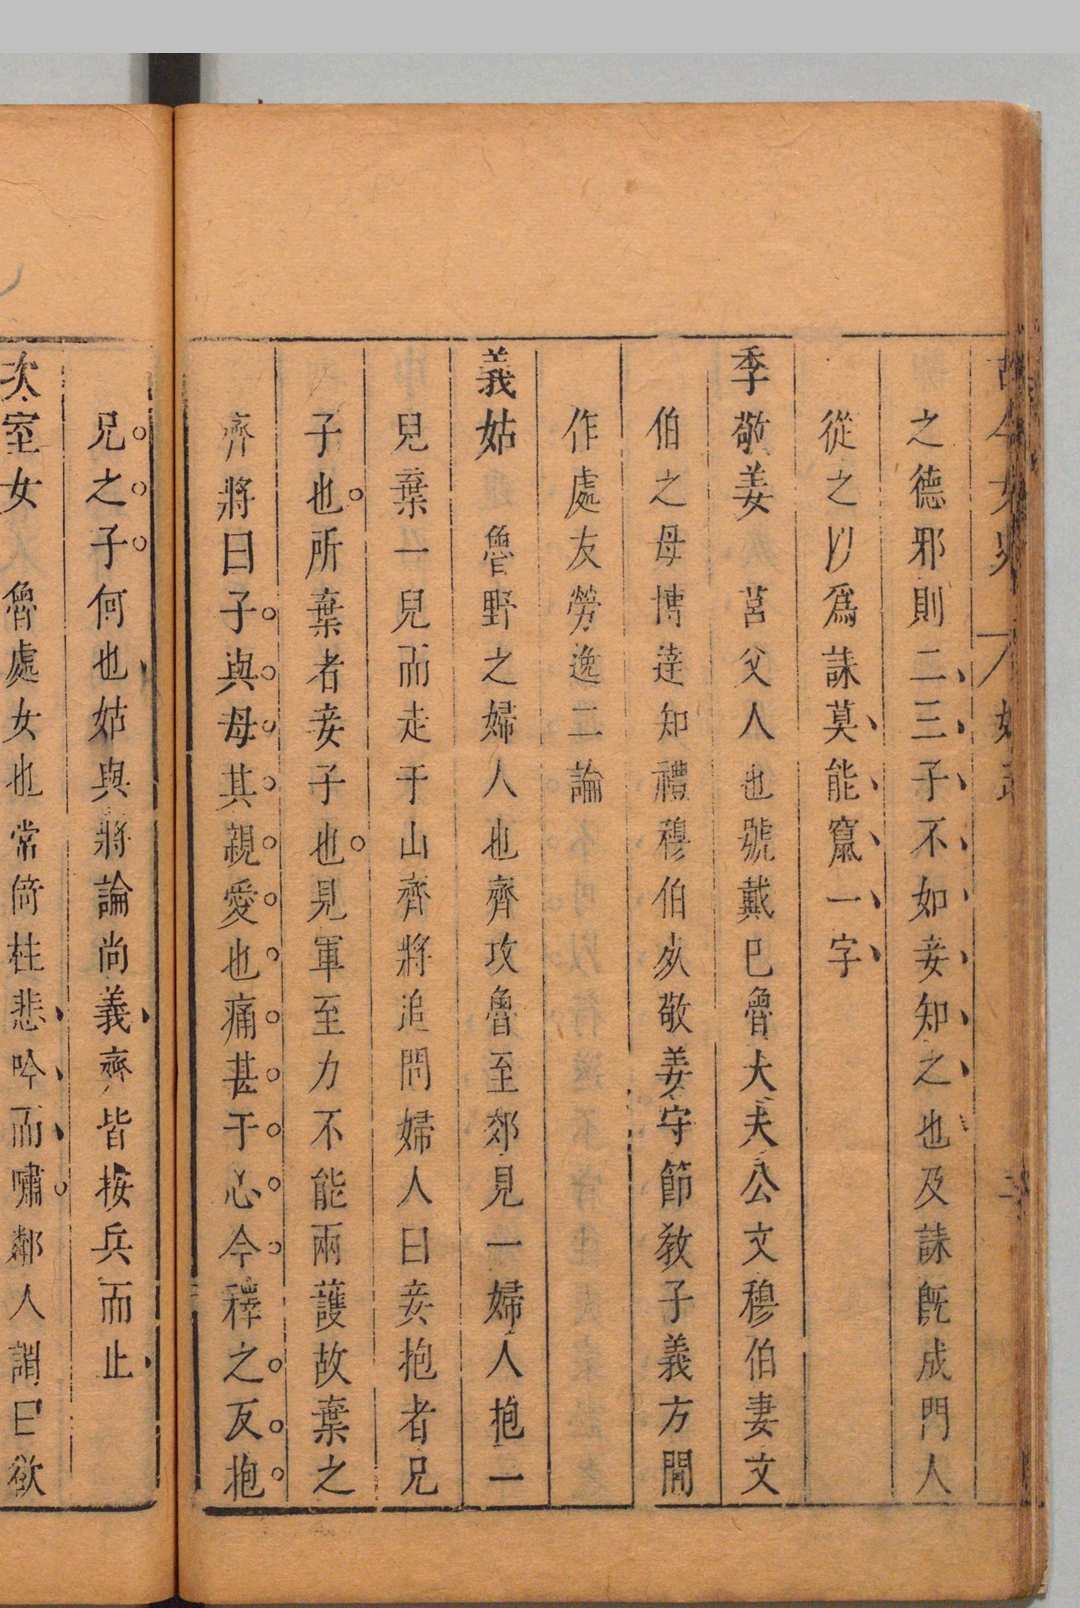 古今女史
二
之德邪則二三子不如妾知之也及誄旣成門人
從之以爲誄莫能竄一字
季敬姜　莒父人也號戴巳魯大夫公文穆伯妻文
伯之母博達知禮穆伯歿敬姜守節教子義方閒
作處友勞逸二論
義姑　魯野之婦人也齊攻魯至郊見一婦人抱一
兒棄一兒而走于山齊將追問婦人曰妾抱者兄
子也所棄者妾子也見軍至力不能兩護故棄之
齊將曰子與母其親愛也痛甚于心今釋之反抱
兄之子何也姑與將論尚義齊皆按兵而止
次室女　魯處女也常倚柱悲吟而嘯鄰人謂曰欲